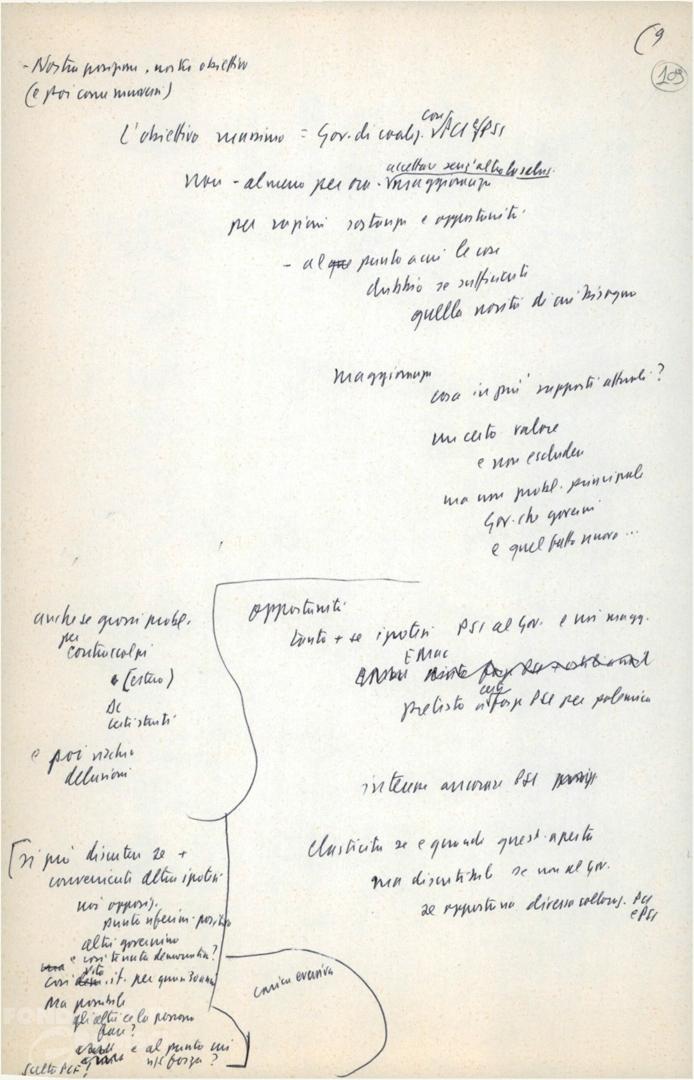 (9
109
- Nostra posizione, nostro obiettivo
(e poi come muoversi)
L'obiettivo massimo = Gov. di coaliz. con PCI e PSI
accettare senz'altro
non - almeno per ora - maggioranza
per ragioni sostanza e opportunità
- al punto a cui le cose
dubbio se sufficiente
quella novità di cui bisogno
Maggioranza
cosa in più rapporti attuali?
un certo valore
e non escludere
ma non probl. principale
Gov. che governi
e quel fatto nuovo ...
opportunità
tanto + se ipotesi PSI al Gov. e noi magg.
pretesto forze PSI per polemica
interesse ancorare PSI
Elasticità se e quando quest. aperta
ma discutibile se non al Gov.
se opportuna diversa collocaz. PCI
e PSI
anche se grossi probl.
per
contraccolpi
(estero)
DC
ceti
e poi rischio
delusioni
[si può discutere se +
conveniente altra ipotesi
noi opposiz.
punto riferim. positivo
altri governino
e così tenuta democratica?
così vita it. per quasi 30 anni
Ma possibile
gli altri ce la possono
fare?
e al punto cui
forza?
Scelta PCF!